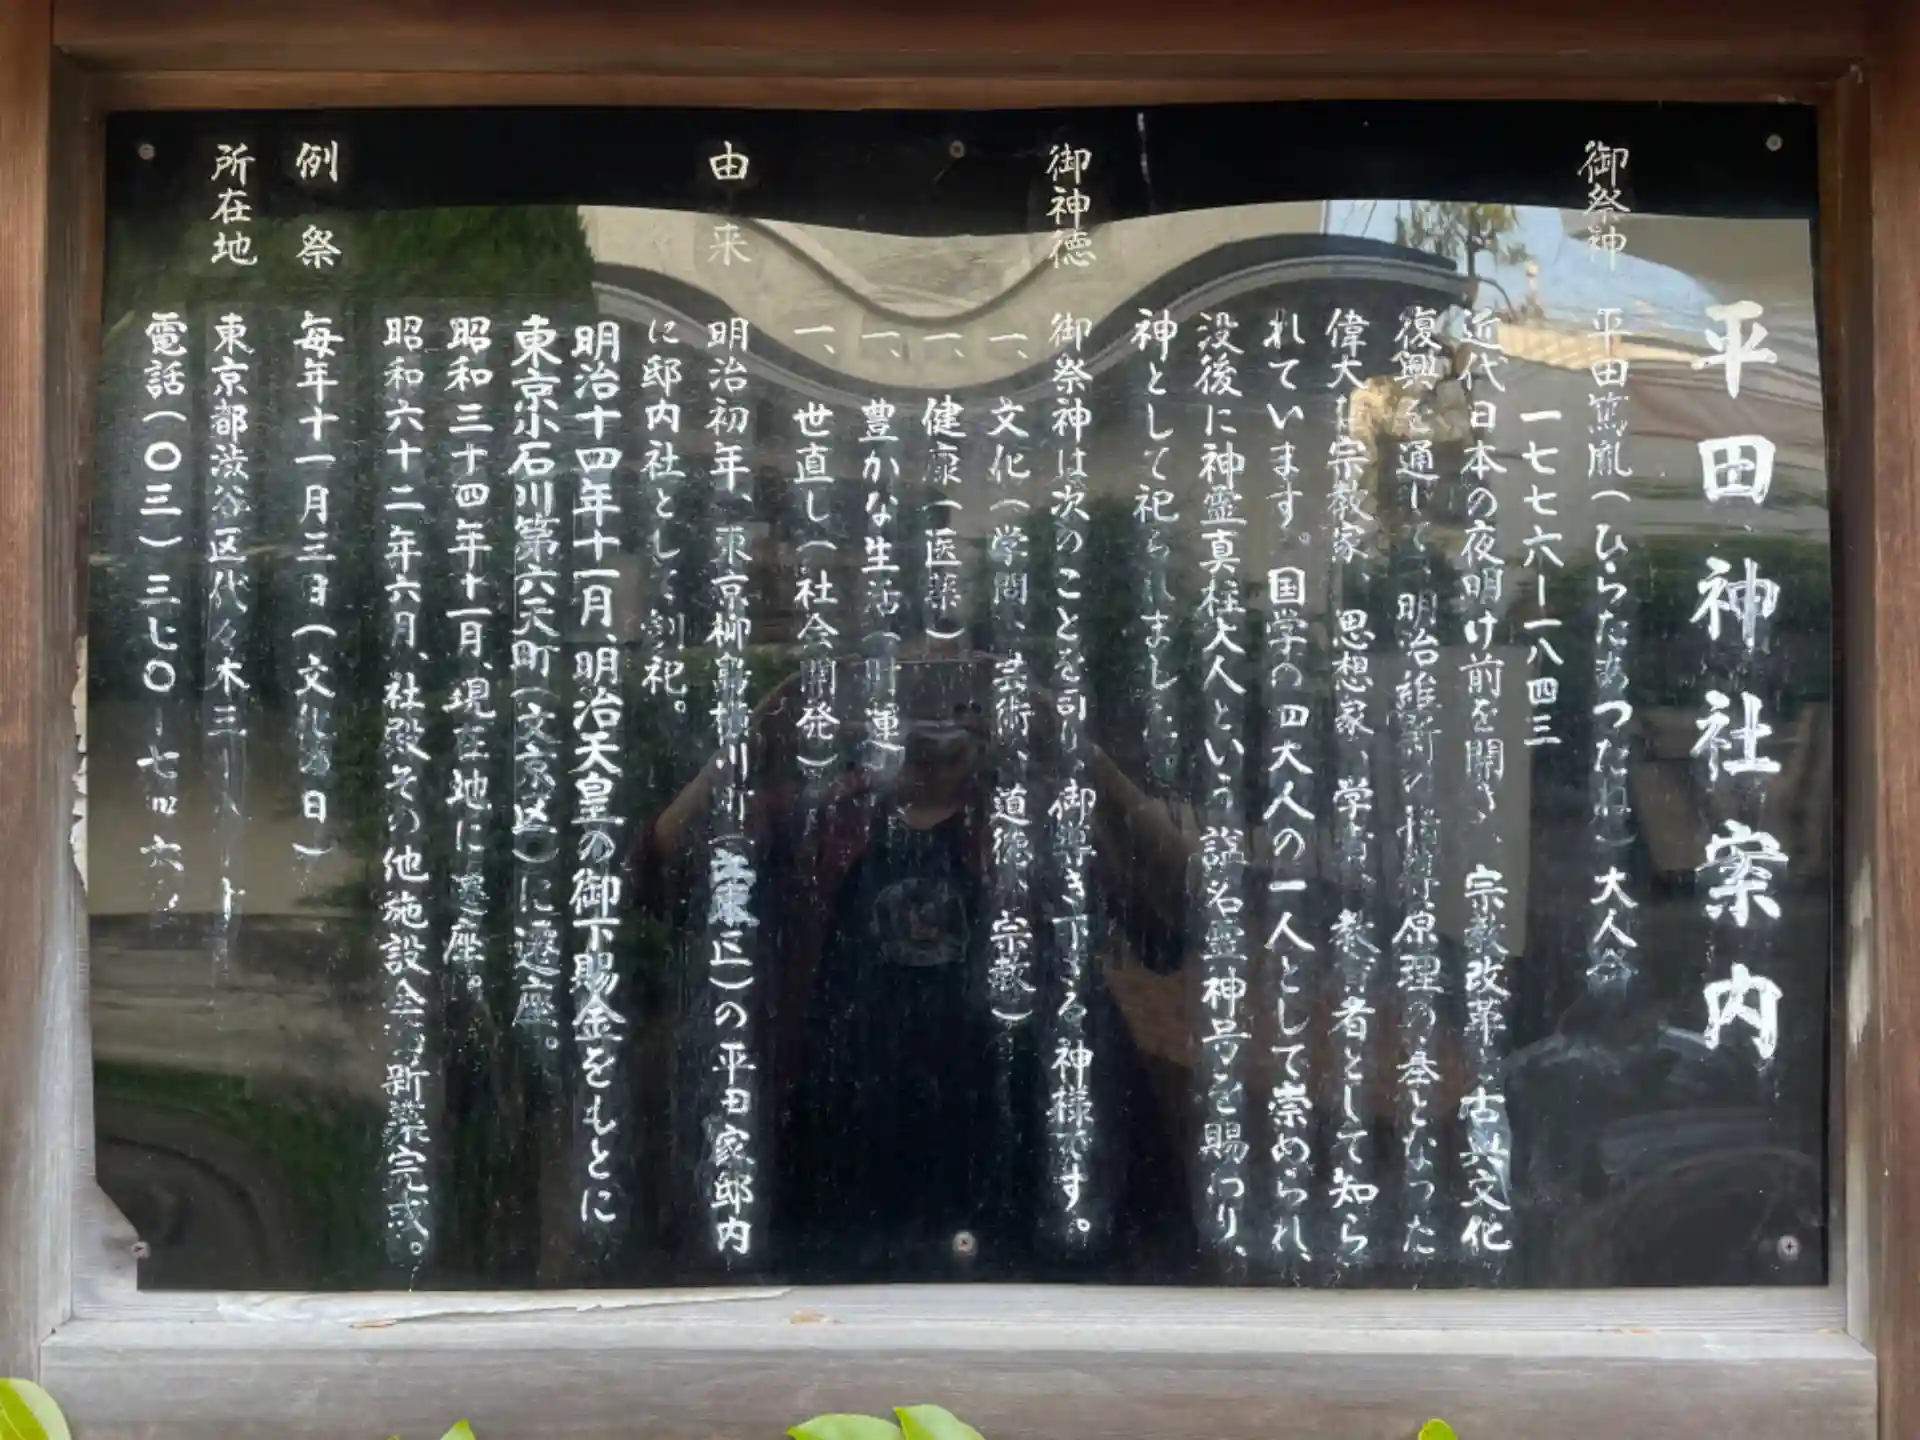 平田神社案内
御祭神　平田篤胤（ひらたあつたね）大人命
一七七六ー一八四三
近代日本の夜明け前を開き、宗教改革と古典文化
復興を通して、明治維新の指導原理の基となった
偉大な宗教家、思想家、学者、教育者として知ら
れています。国学の四大人の一人として崇められ、
没後に神霊真柱大人という諡名霊神号を賜わり、
神として祀られました。
御神徳　御祭神は次のことを司り、御導き下さる神様です。
一、文化（学問、芸術、道徳、宗教）
一、健康（医薬）
一、豊かな生活（財運）
一、世直し（社会開発）
由来　明治初年、東京柳島横川町（台東区）の平田家邸内
に邸内社として創祀。
明治十四年十一月、明治天皇の御下賜金をもとに
東京小石川第六天町（文京区）に遷座。
昭和三十四年十一月、現在地に遷座。
昭和六十二年六月、社殿その他施設全面新築完成。
例祭　毎年十一月三日（文化の日）
所在地　東京都渋谷区代々木三
電話（〇三）三七〇ー七四六